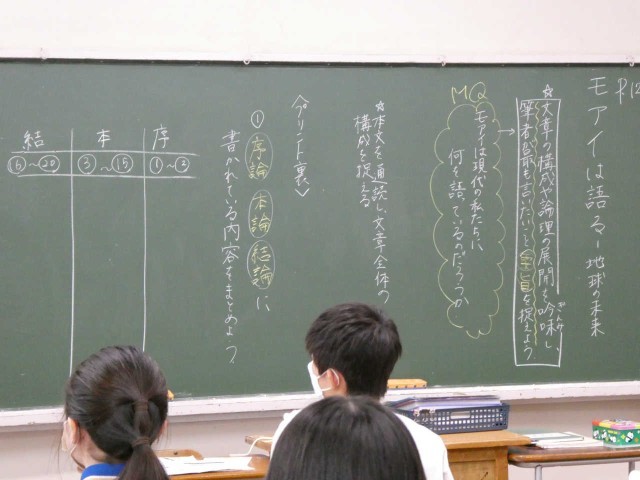 P12
モアイは語るー地球の未来
☆文章の構成や論理の展開を吟味し、
ぎんみ
筆者が最も言いたいこと(主旨)を捉えよう。
MQ
モアイは現代の私たちに、
何を語っているのだろうか
☆本文を通読し、文章全体の
構成を捉える
〈プリント裏〉
① 序論 本論 結論 に
書かれている内容をまとめよう。
序 本 結
①〜② ③〜⑮ ⑯〜⑳